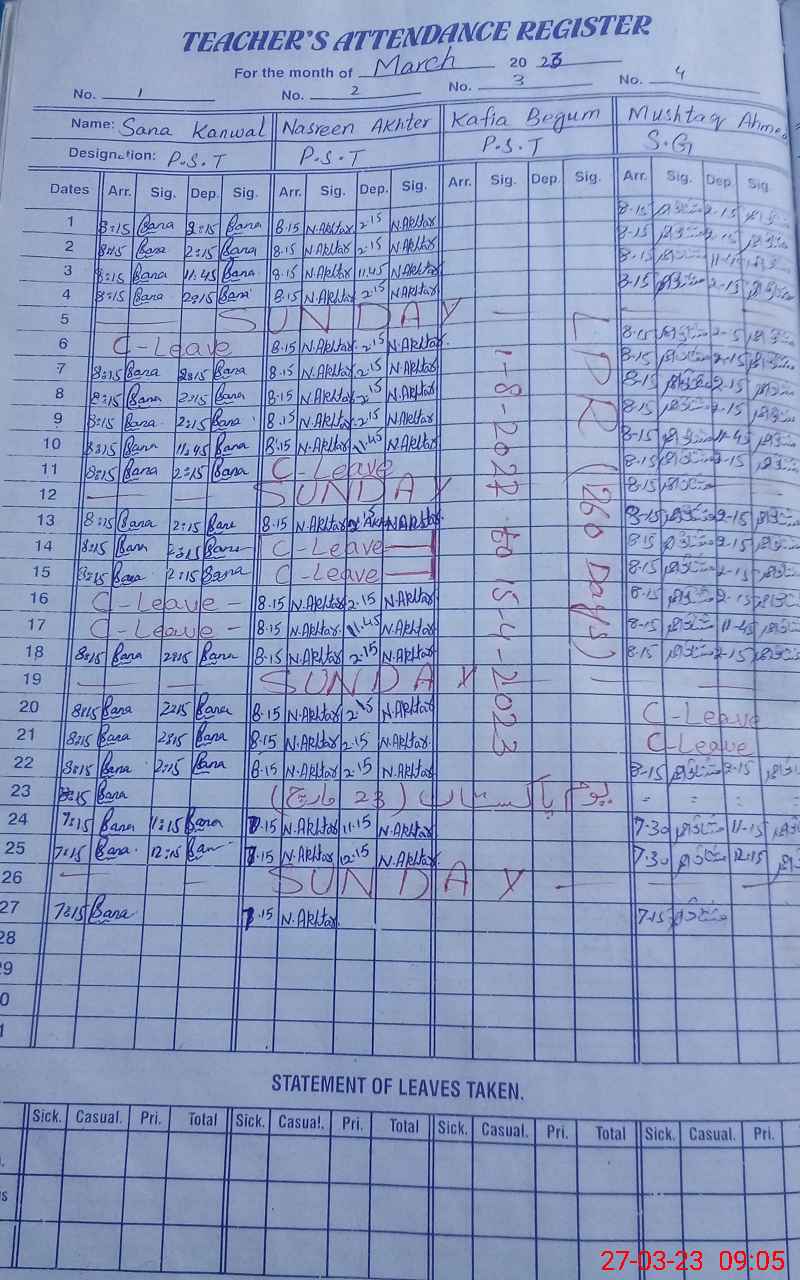 TEACHER'S ATTENDANCE REGISTER
For the month of March 2023
No. 1 No. 2 No. 3 No. 4
Name: Sana Kanwal Nasreen Akhter Kafia Begum Mushtaq Ahmed
Designation: P.S.T P.S.T P.S.T S.G
Dates Arr. Sig. Dep. Sig. Arr. Sig. Dep. Sig. Arr. Sig. Dep. Sig. Arr. Sig. Dep Sig
1 8:15 Sana 2:15 Sana 8.15 N.Akhtar 2.15 N.Akhtar 8-15 2-15
2 8:15 Sana 2:15 Sana 8.15 N.Akhtar 2.15 N.Akhtar 8-15 2-15
3 8:15 Sana 11.45 Sana 8.15 N.Akhtar 11.45 N.Akhtar 8-15
4 8:15 Sana 2:15 Sana 8.15 N.Akhtar 2.15 N.Akhtar 8-15 2-15
5 SUNDAY
6 C-Leave 8.15 N.Akhtar 2.15 N.Akhtar 8-15 2-15
7 8:15 Sana 2:15 Sana 8.15 N.Akhtar 2.15 N.Akhtar 8-15 2-15
8 8:15 Sana 2:15 Sana 8.15 N.Akhtar 2.15 N.Akhtar 8-15 2-15
9 8:15 Sana 2:15 Sana 8.15 N.Akhtar 2.15 N.Akhtar 8-15 2-15
10 8:15 Sana 11.45 Sana 8.15 N.Akhtar 11.45 N.Akhtar 8-15 11-45
11 8:15 Sana 2:15 Sana C-Leave 8-15 2-15
12 SUNDAY 8-15
13 8:15 Sana 2:15 Sana 8.15 N.Akhtar N.Akhtar 8-15 2-15
14 8:15 Sana 2:15 Sana C-Leave 8-15 2-15
15 8:15 Sana 2:15 Sana C-Leave 8-15 2-15
16 C-Leave 8.15 N.Akhtar 2.15 N.Akhtar 8-15 2-15
17 C-Leave 8.15 N.Akhtar 11.45 N.Akhtar 8-15 11-45
18 8:15 Sana 2:15 Sana 8.15 N.Akhtar 2.15 N.Akhtar 8-15 2-15
19 SUNDAY
20 8:15 Sana 2:15 Sana 8.15 N.Akhtar 2.15 N.Akhtar C-Leave
21 8:15 Sana 2:15 Sana 8.15 N.Akhtar 2.15 N.Akhtar C-Leave
22 8:15 Sana 2:15 Sana 8.15 N.Akhtar 2.15 N.Akhtar 8-15 2-15
23 8:15 Sana یوم پاکستان (23 مارچ)
24 7:15 Sana 11:15 Sana 7.15 N.Akhtar 11.15 N.Akhtar 7-30 11-15
25 7:15 Sana 12:15 Sana 7.15 N.Akhtar 12.15 N.Akhtar 7-30 12-15
26 SUNDAY
27 7:15 Sana 7.15 N.Akhtar 7-15
28
29
1-8-2022 to 15-4-2023
LPR (260 Days)
STATEMENT OF LEAVES TAKEN.
Sick. Casual. Pri. Total Sick. Casual. Pri. Total Sick. Casual. Pri. Total Sick. Casual. Pri.
27-03-23 09:05